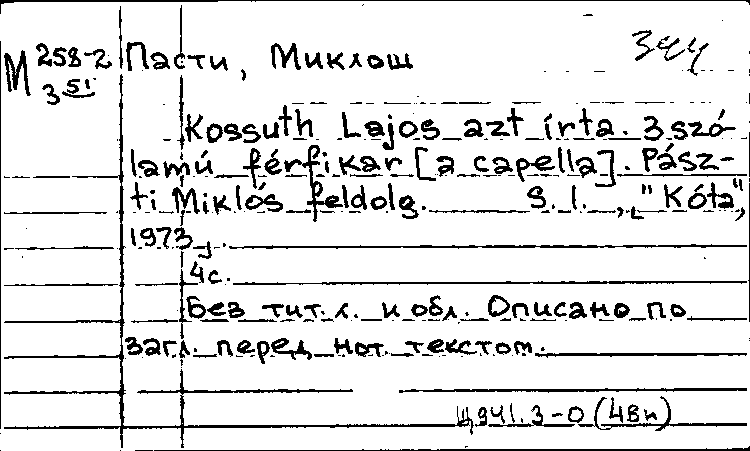 М 258-2
3 51
344
Пасти, Миклош
Kossuth Lajos azt írta. 3 szó-
lamú férfikar [a capella]. Pász-
ti Miklós feldolg. S. l., "Kóta",
1973.
4с.
Без тит. л. и обл. Описано по
загл. перед нот. текстом.
Щ941.3-0 (4Вн)